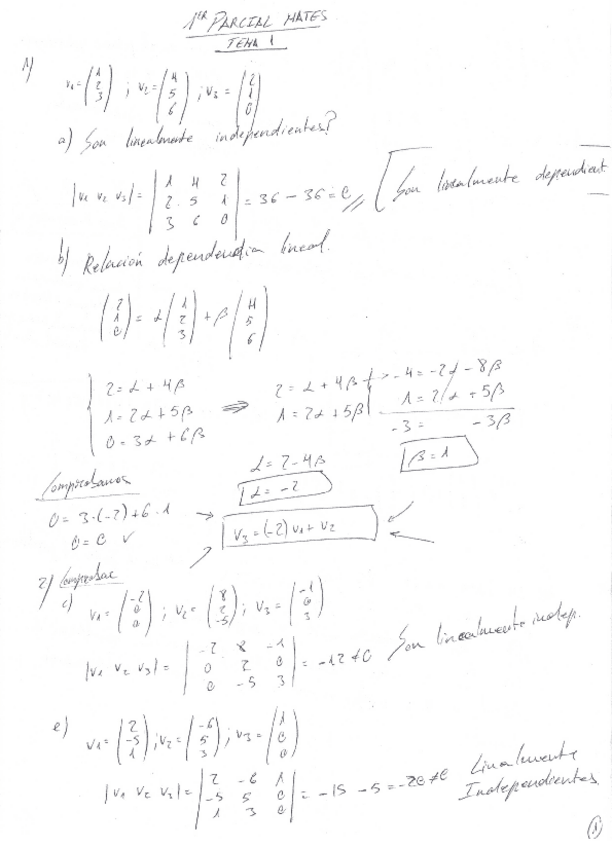 1ER PARCIAL MATES
TEMA 1
1)
v1 = (1 2 3) ; v2 = (4 5 6) ; v3 = (2 1 0)
a) Son linealmente independientes?
|v1 v2 v3| = |1 4 2| = 36 - 36 = 0 // [Son linealmente dependient.
|2 5 1|
|3 6 0|
b) Relación dependendia lineal.
(2 1 0) = α (1 2 3) + β (4 5 6)
2 = α + 4β
1 = 2α + 5β
0 = 3α + 6β
⇒ 2 = α + 4β → -4 = -2α - 8β
1 = 2α + 5β | 1 = 2α + 5β
-3 = -3β
β = 1
α = 2 - 4β
α = -2
Comprobamos
0 = 3·(-2) + 6·1 →
0 = 0 ✓
v3 = (-2)v1 + v2
2) Comprobac
c) v1 = (-2 0 0) ; v2 = (8 2 -5) ; v3 = (-1 0 3)
|v1 v2 v3| = |-2 8 -1| = -12 ≠ 0 Son linealmente indep.
|0 2 0|
|0 -5 3|
e) v1 = (2 -5 1) ; v2 = (-6 5 3) ; v3 = (1 0 0)
|v1 v2 v3| = |2 -6 1| = -15 - 5 = -20 ≠ 0 Linealmente Independientes
|-5 5 0|
|1 3 0|
1